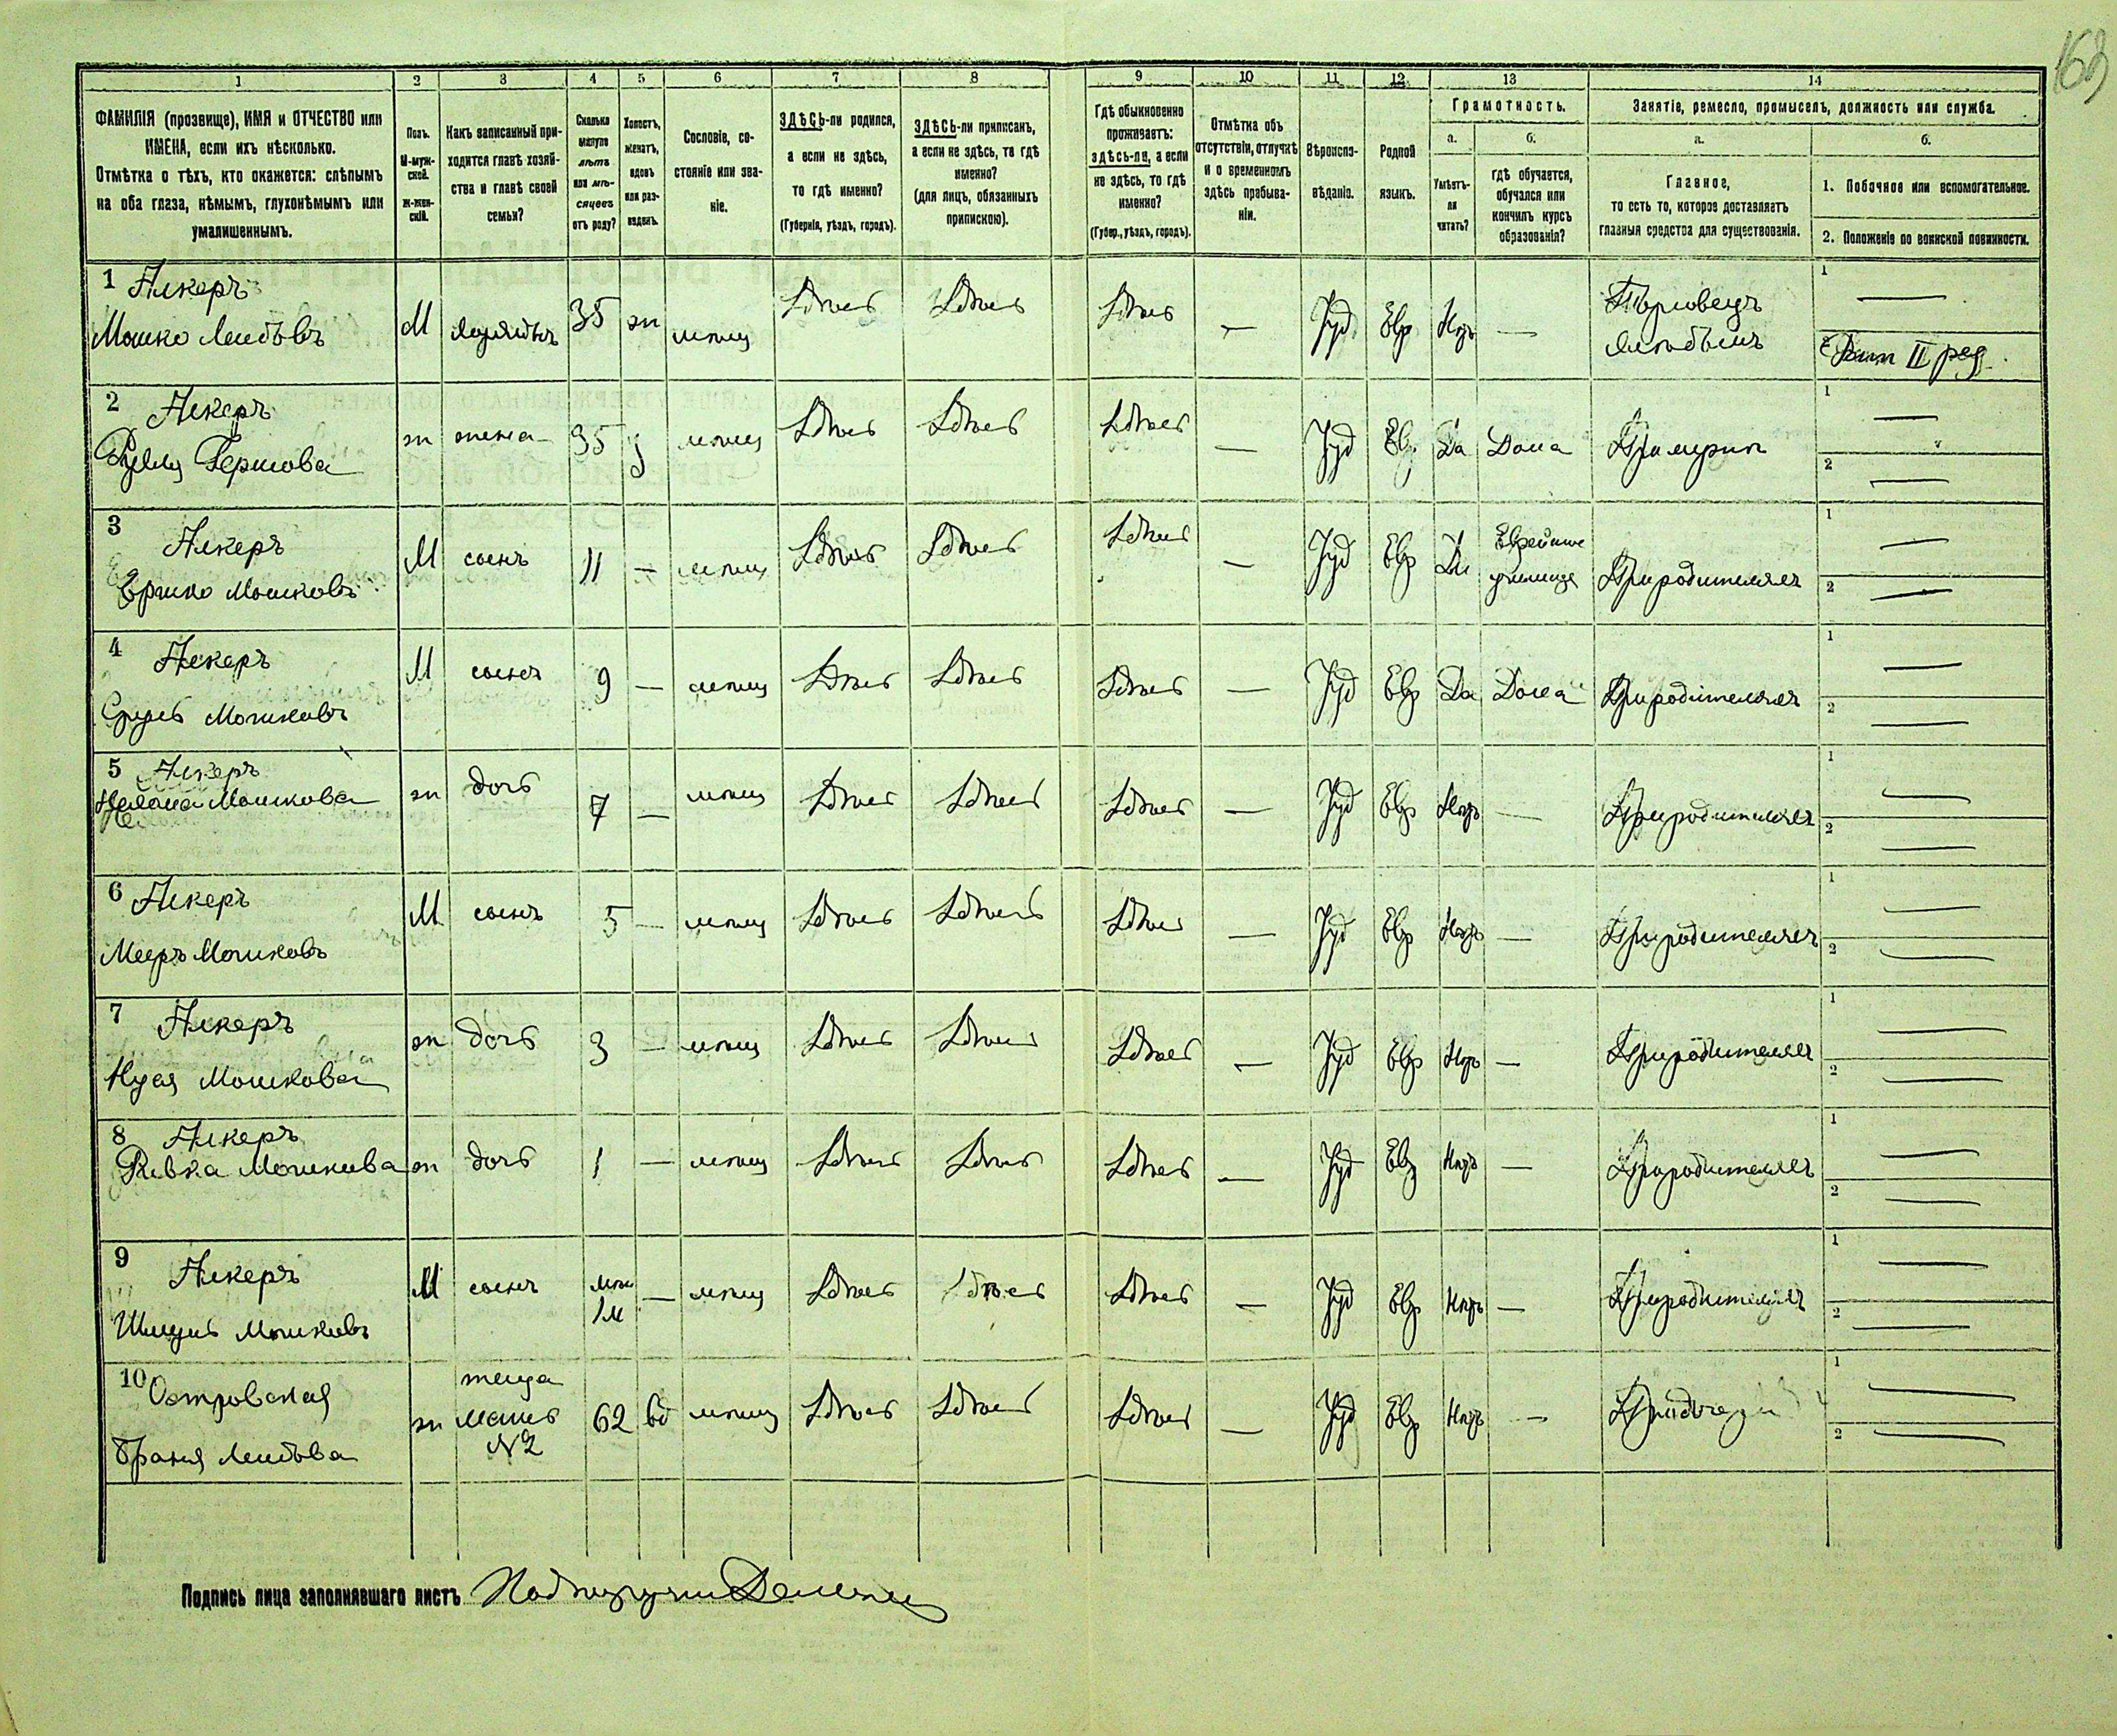 163
1 2 3 4 5 6 7 8 9 10 11 12 13 14
ФАМИЛІЯ (прозвище), ИМЯ и ОТЧЕСТВО или
ИМЕНА, если ихъ нѣсколько.
Отмѣтка о тѣхъ, кто окажется: слѣпымъ
на оба глаза, нѣмымъ, глухонѣмымъ или
умалишеннымъ.
Полъ.
М-муж-
ской.
Ж-жен-
скій.
Какъ записанный при-
ходится главѣ хозяй-
ства и главѣ своей
семьи?
Сколько
минуло
лѣтъ
или мѣ-
сяцевъ
отъ роду?
Холостъ,
женатъ,
вдовъ
или раз-
веденъ.
Сословіе, со-
стояніе или зва-
ніе.
ЗДѢСЬ-ли родился,
а если не здѣсь,
то гдѣ именно?
(Губернія, уѣздъ, городъ).
ЗДѢСЬ-ли приписанъ,
а если не здѣсь, то гдѣ
именно?
(для лицъ, обязанныхъ
припискою).
Гдѣ обыкновенно
проживаетъ:
здѣсь-ли, а если
не здѣсь, то гдѣ
именно?
(Губер., уѣздъ, городъ).
Отмѣтка объ
отсутствіи, отлучкѣ
и о временномъ
здѣсь пребыва-
ніи.
Вѣроиспо-
вѣданіе.
Родной
языкъ.
Грамотность.
а.
Умѣетъ-
ли
читать?
б.
гдѣ обучается,
обучался или
кончилъ курсъ
образованія?
Занятіе, ремесло, промыселъ, должность или служба.
а.
Главное,
то есть то, которое доставляетъ
главныя средства для существованія.
б.
1. Побочное или вспомогательное.
2. Положеніе по воинской повинности.
1 Алкеръ
Мошко Лейбовъ М хозяинъ 35 ж мѣщ Здѣсь Здѣсь Здѣсь — Іуд Евр Нѣтъ — Торговецъ
хлѣбомъ 1 —
2 Рат II раз
2 Алкеръ
Гершова ж жена 35 з мѣщ Здѣсь Здѣсь Здѣсь — Іуд Евр Да Дома При мужѣ 1 —
2 —
3 Алкеръ
Ершко Мошковъ М сынъ 11 — мѣщ Здѣсь Здѣсь Здѣсь — Іуд Евр Да
училище При родителяхъ 1 —
2 —
4 Алкеръ
Сруль Мошковъ М сынъ 9 — мѣщ Здѣсь Здѣсь Здѣсь — Іуд Евр Да Дома При родителяхъ 1 —
2 —
5 Алкеръ
Мошкова ж дочь 7 — мѣщ Здѣсь Здѣсь Здѣсь — Іуд Евр Нѣтъ — При родителяхъ 1 —
2 —
6 Алкеръ
Мееръ Мошковъ М сынъ 5 — мѣщ Здѣсь Здѣсь Здѣсь — Іуд Евр Нѣтъ — При родителяхъ 1 —
2 —
7 Алкеръ
Мошкова ж дочь 3 — мѣщ Здѣсь Здѣсь Здѣсь — Іуд Евр Нѣтъ — При родителяхъ 1 —
2 —
8 Алкеръ
Ривка Мошкова ж дочь 1 — мѣщ Здѣсь Здѣсь Здѣсь — Іуд Евр Нѣтъ — При родителяхъ 1 —
2 —
9 Алкеръ
Шмуль Мошковъ М сынъ 1м — мѣщ Здѣсь Здѣсь Здѣсь — Іуд Евр Нѣтъ — При родителяхъ 1 —
2 —
10 Островская
Браня Лейбова ж теща
мать
№2 62 вд мѣщ Здѣсь Здѣсь Здѣсь — Іуд Евр Нѣтъ — При дочери 1 —
2 —
Подпись лица заполнявшаго листъ